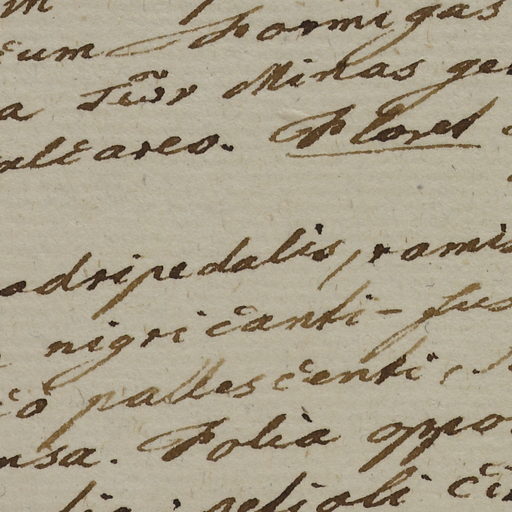 eum Formigas
a Minas ge
alcareo. Floret
adripedalis, ramis
nigricanti-fus
co pallescenti,
nsa. Folia oppo
petioli